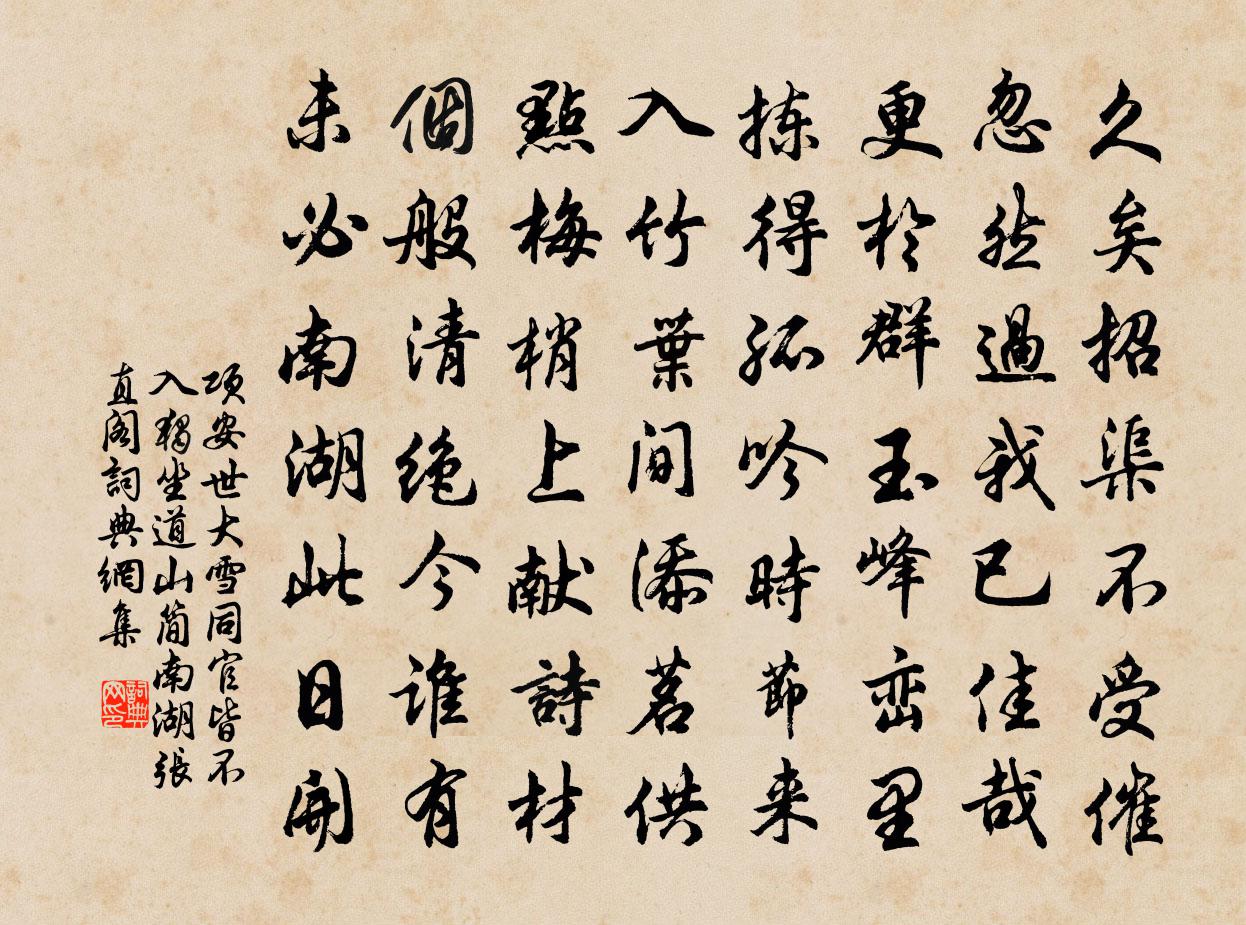 久矣招渠不受催
忽然過我已佳哉
更於群玉峰峦里
拣得孤吟時節来
入竹葉间添茗供
點梅梢上献詩材
個般清绝今谁有
未必南湖此日開
項安世大雪同官皆不
入獨坐道山简南湖張
直阁詞典網集
詞典网印